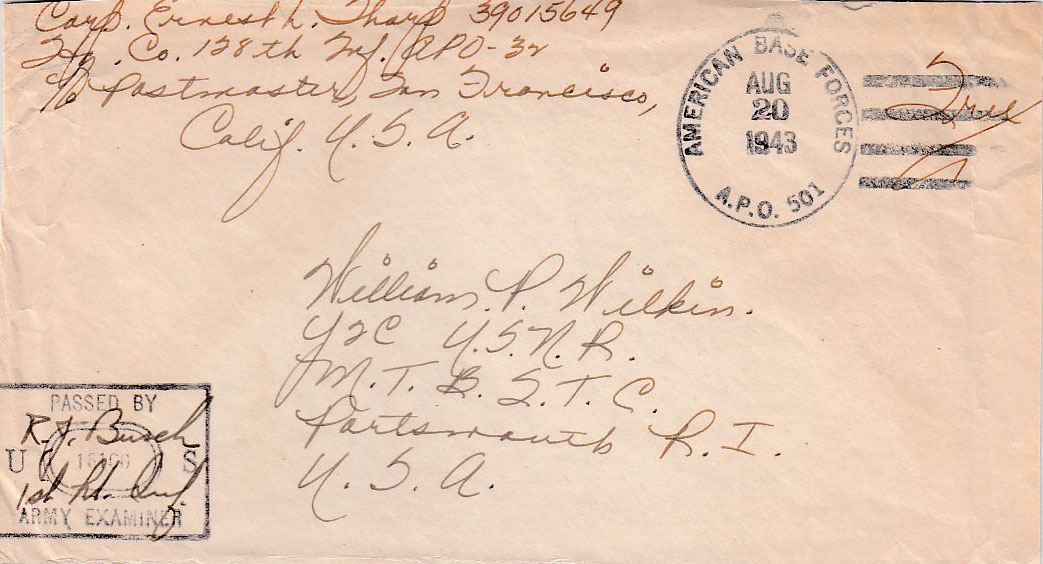 Corp. Ernest L. Tharp 39015649
Hq. Co. 128th Inf. APO-32
c/o Postmaster, San Francisco,
Calif. U. S. A.
AMERICAN BASE FORCES
AUG
20
1943
A.P.O. 501
Free
William P. Wilkin.
Y2C U.S.N.R.
M. T. B. S. T. C.
Portsmouth R. I.
U. S. A.
PASSED BY
R. J. Busch
U S
1st Lt. Inf.
ARMY EXAMINER